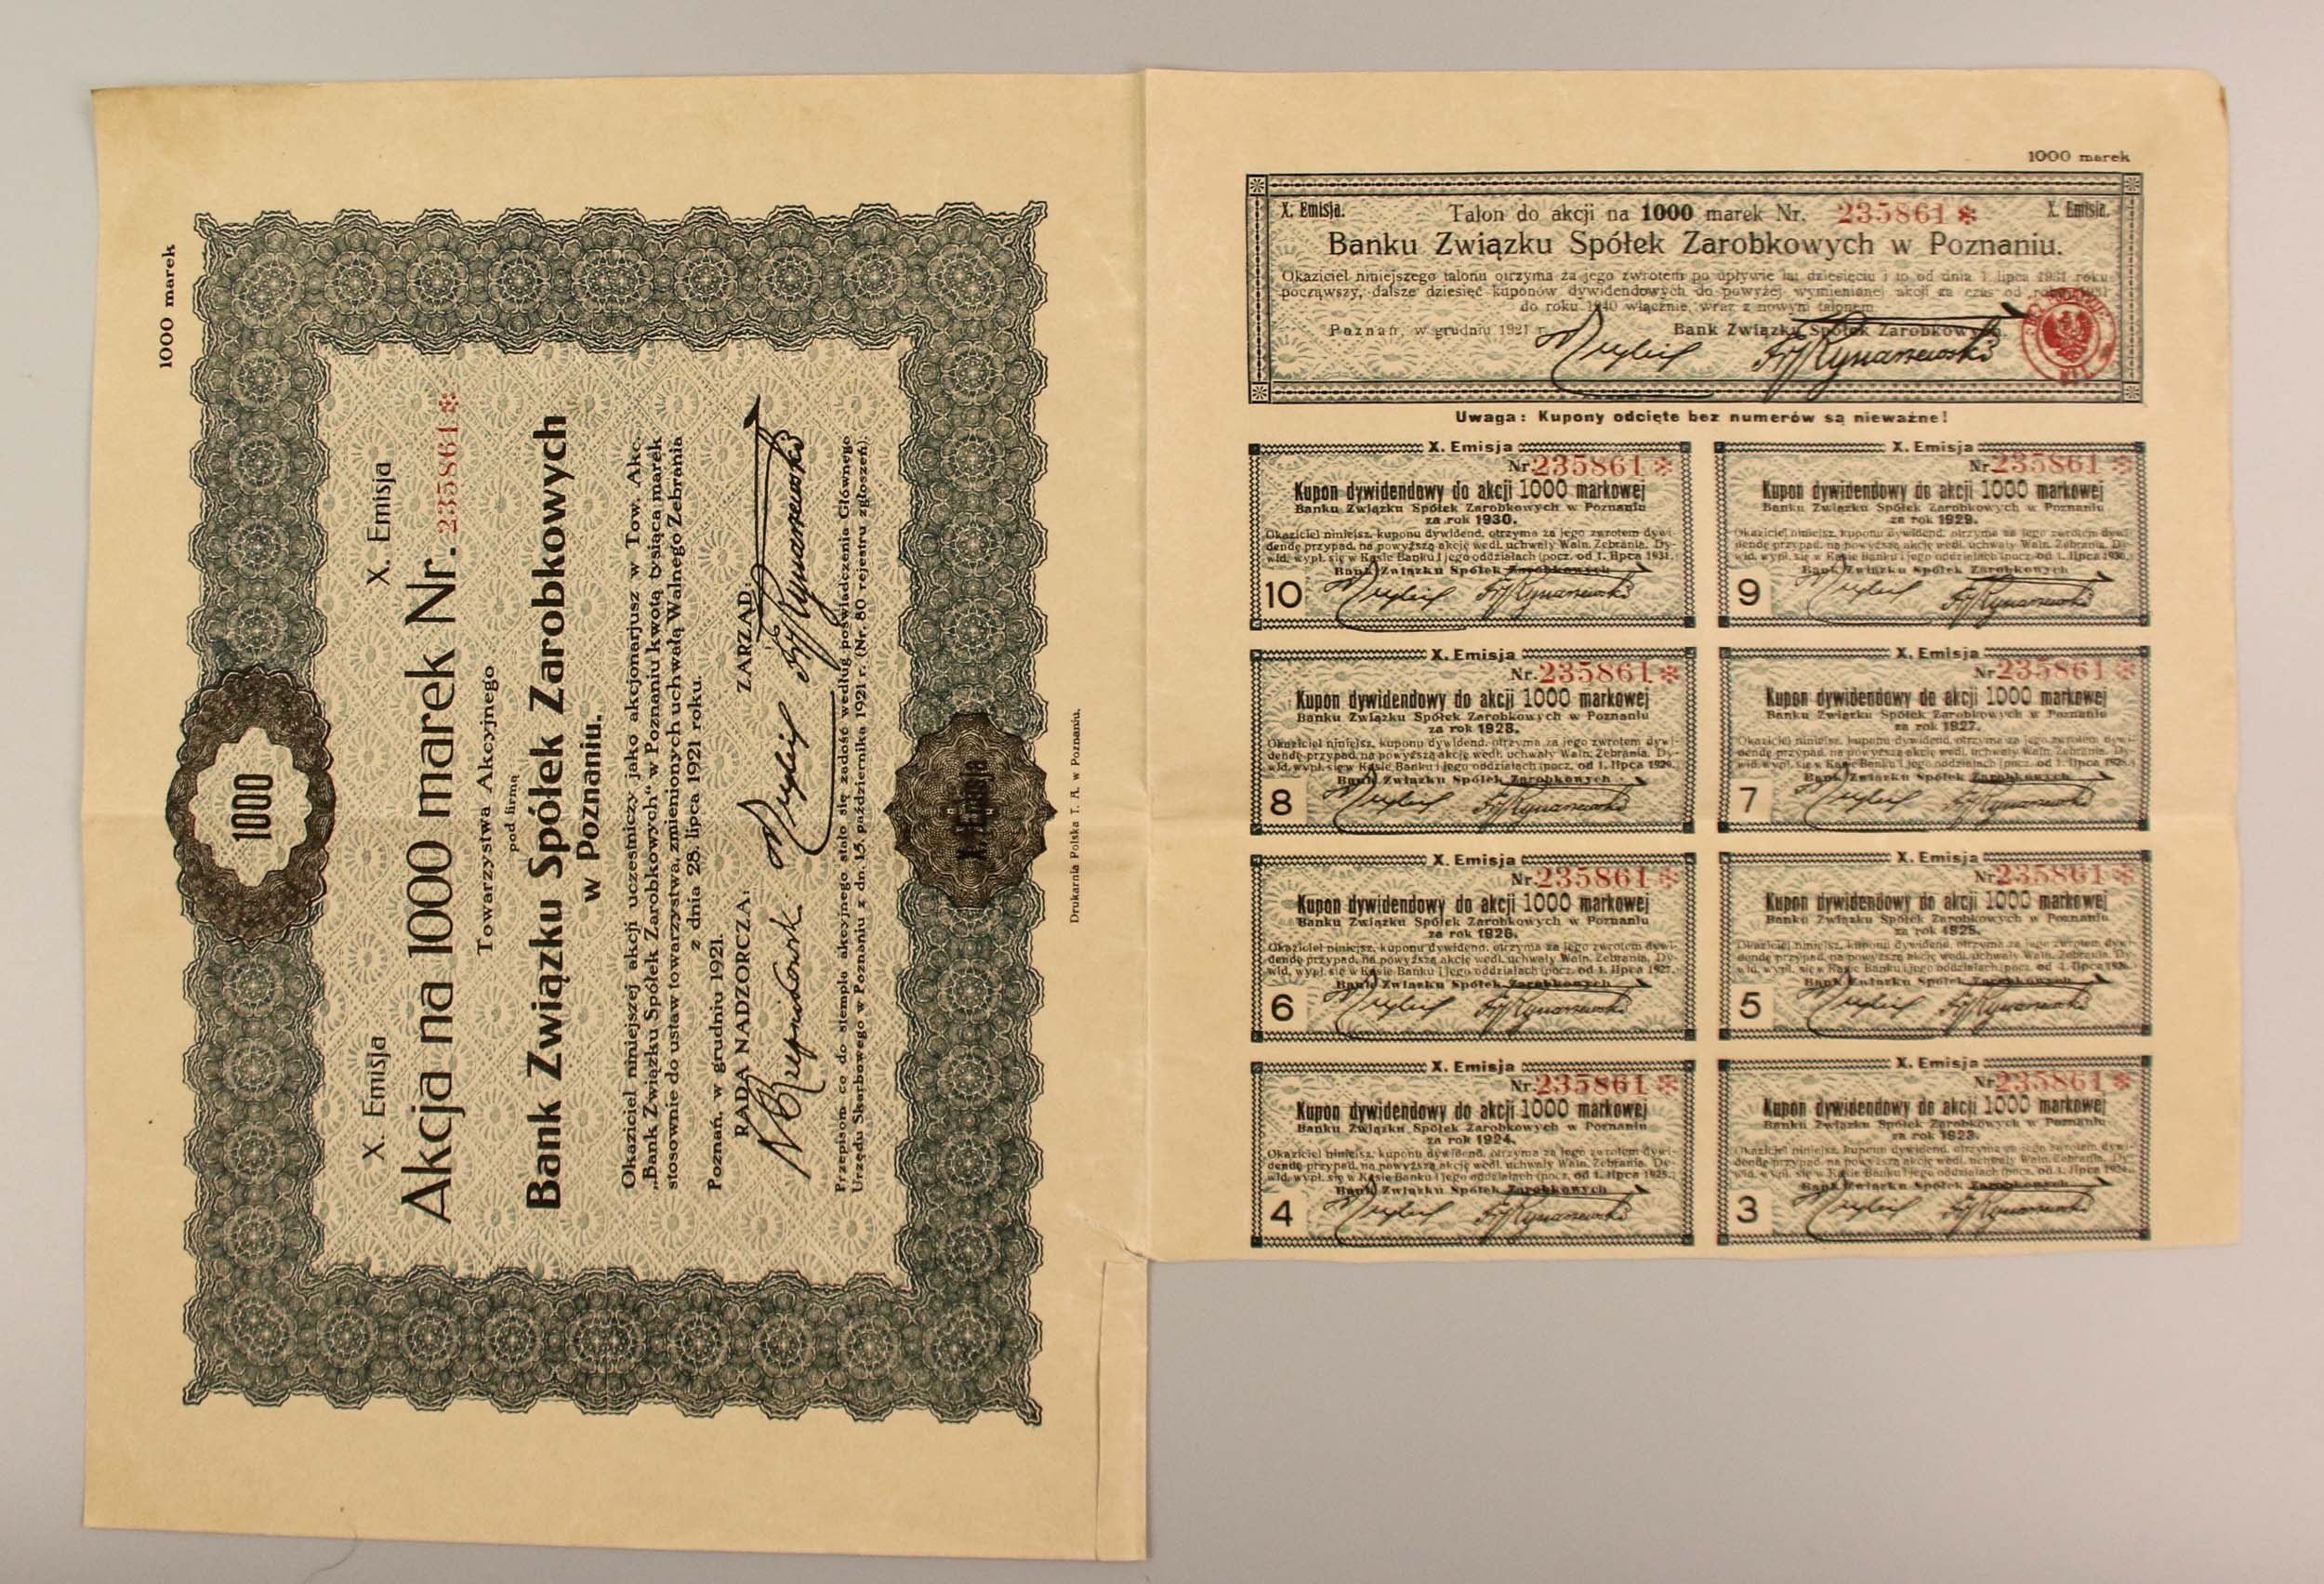 1000 marek
1000
X. Emisja X. Emisja
Akcja na 1000 marek Nr. 235861 *
Towarzystwa Akcyjnego
pod firmą
Bank Związku Spółek Zarobkowych
w Poznaniu.
Okaziciel niniejszej akcji uczestniczy jako akcjonarjusz w Tow. Akc.
„Bank Związku Spółek Zarobkowych“ w Poznaniu kwotą tysiąca marek
stosownie do ustaw towarzystwa, zmienionych uchwałą Walnego Zebrania
z dnia 28. lipca 1921 roku.
Poznań, w grudniu 1921.
RADA NADZORCZA: ZARZĄD:
Przepisom co do stempla akcyjnego stało się zadość według poświadczenia Głównego
Urzędu Skarbowego w Poznaniu z dn. 15. października 1921 r. (Nr. 80 rejestru zgłoszeń).
X. Emisja
Drukarnia Polska T. A. w Poznaniu.
1000 marek
X. Emisja. Talon do akcji na 1000 marek Nr. 235861 * X. Emisja.
Banku Związku Spółek Zarobkowych w Poznaniu.
Okaziciel niniejszego talonu otrzyma za jego zwrotem po upływie lat dziesięciu i to od dnia 1 lipca 1931 roku
począwszy, dalsze dziesięć kuponów dywidendowych do powyżej wymienionej akcji za czas od roku 1931
do roku 1940 włącznie, wraz z nowym talonem
Poznań, w grudniu 1921 r. Bank Związku Spółek Zarobkowych.
Uwaga: Kupony odcięte bez numerów są nieważne!
X. Emisja
Nr. 235861 *
Kupon dywidendowy do akcji 1000 markowej
Banku Związku Spółek Zarobkowych w Poznaniu
za rok 1930.
Okaziciel niniejsz. kuponu dywidend. otrzyma za jego zwrotem dywi-
dendę przypad. na powyższą akcję wedł. uchwały Waln. Zebrania. Dy-
wid. wypł. się w Kasie Banku i jego oddziałach (pocz. od 1. lipca 1931.
Bank Związku Spółek Zarobkowych
10
X. Emisja
Nr. 235861 *
Kupon dywidendowy do akcji 1000 markowej
Banku Związku Spółek Zarobkowych w Poznaniu
za rok 1929.
Okaziciel niniejsz. kuponu dywidend. otrzyma za jego zwrotem dywi-
dendę przypad. na powyższą akcję wedł. uchwały Waln. Zebrania. Dy-
wid. wypł. się w Kasie Banku i jego oddziałach (pocz. od 1. lipca 1930.
Bank Związku Spółek Zarobkowych
9
X. Emisja
Nr. 235861 *
Kupon dywidendowy do akcji 1000 markowej
Banku Związku Spółek Zarobkowych w Poznaniu
za rok 1928.
Okaziciel niniejsz. kuponu dywidend. otrzyma za jego zwrotem dywi-
dendę przypad. na powyższą akcję wedł. uchwały Waln. Zebrania. Dy-
wid. wypł. się w Kasie Banku i jego oddziałach (pocz. od 1. lipca 1929.
Bank Związku Spółek Zarobkowych
8
X. Emisja
Nr. 235861 *
Kupon dywidendowy do akcji 1000 markowej
Banku Związku Spółek Zarobkowych w Poznaniu
za rok 1927.
Okaziciel niniejsz. kuponu dywidend. otrzyma za jego zwrotem dywi-
dendę przypad. na powyższą akcję wedł. uchwały Waln. Zebrania. Dy-
wid. wypł. się w Kasie Banku i jego oddziałach (pocz. od 1. lipca 1928.
Bank Związku Spółek Zarobkowych
7
X. Emisja
Nr. 235861 *
Kupon dywidendowy do akcji 1000 markowej
Banku Związku Spółek Zarobkowych w Poznaniu
za rok 1926.
Okaziciel niniejsz. kuponu dywidend. otrzyma za jego zwrotem dywi-
dendę przypad. na powyższą akcję wedł. uchwały Waln. Zebrania. Dy-
wid. wypł. się w Kasie Banku i jego oddziałach (pocz. od 1. lipca 1927.
Bank Związku Spółek Zarobkowych
6
X. Emisja
Nr. 235861 *
Kupon dywidendowy do akcji 1000 markowej
Banku Związku Spółek Zarobkowych w Poznaniu
za rok 1925.
Okaziciel niniejsz. kuponu dywidend. otrzyma za jego zwrotem dywi-
dendę przypad. na powyższą akcję wedł. uchwały Waln. Zebrania. Dy-
wid. wypł. się w Kasie Banku i jego oddziałach (pocz. od 1. lipca 1926.
Bank Związku Spółek Zarobkowych
5
X. Emisja
Nr. 235861 *
Kupon dywidendowy do akcji 1000 markowej
Banku Związku Spółek Zarobkowych w Poznaniu
za rok 1924.
Okaziciel niniejsz. kuponu dywidend. otrzyma za jego zwrotem dywi-
dendę przypad. na powyższą akcję wedł. uchwały Waln. Zebrania. Dy-
wid. wypł. się w Kasie Banku i jego oddziałach (pocz. od 1. lipca 1925.
Bank Związku Spółek Zarobkowych
4
X. Emisja
Nr. 235861 *
Kupon dywidendowy do akcji 1000 markowej
Banku Związku Spółek Zarobkowych w Poznaniu
za rok 1923.
Okaziciel niniejsz. kuponu dywidend. otrzyma za jego zwrotem dywi-
dendę przypad. na powyższą akcję wedł. uchwały Waln. Zebrania. Dy-
wid. wypł. się w Kasie Banku i jego oddziałach (pocz. od 1. lipca 1924.
Bank Związku Spółek Zarobkowych
3